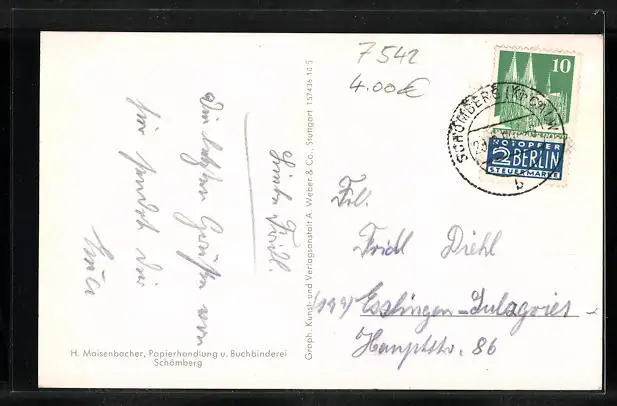 7542
4.00€
10
SCHÖMBERG
NOTOPFER
2 BERLIN
STEUERMARKE
b
Liebe Fridl.
Die letzten Grüße von
hier sendet dir
Frl.
Fridl Diehl
Esslingen-Sulzgries
Hauptstr. 86
Graph. Kunst- und Verlagsanstalt A. Weber & Co., Stuttgart 157436 10 5
H. Maisenbacher, Papierhandlung u. Buchbinderei
Schömberg